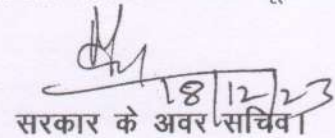 18/12/23
सरकार के अवर सचिव।